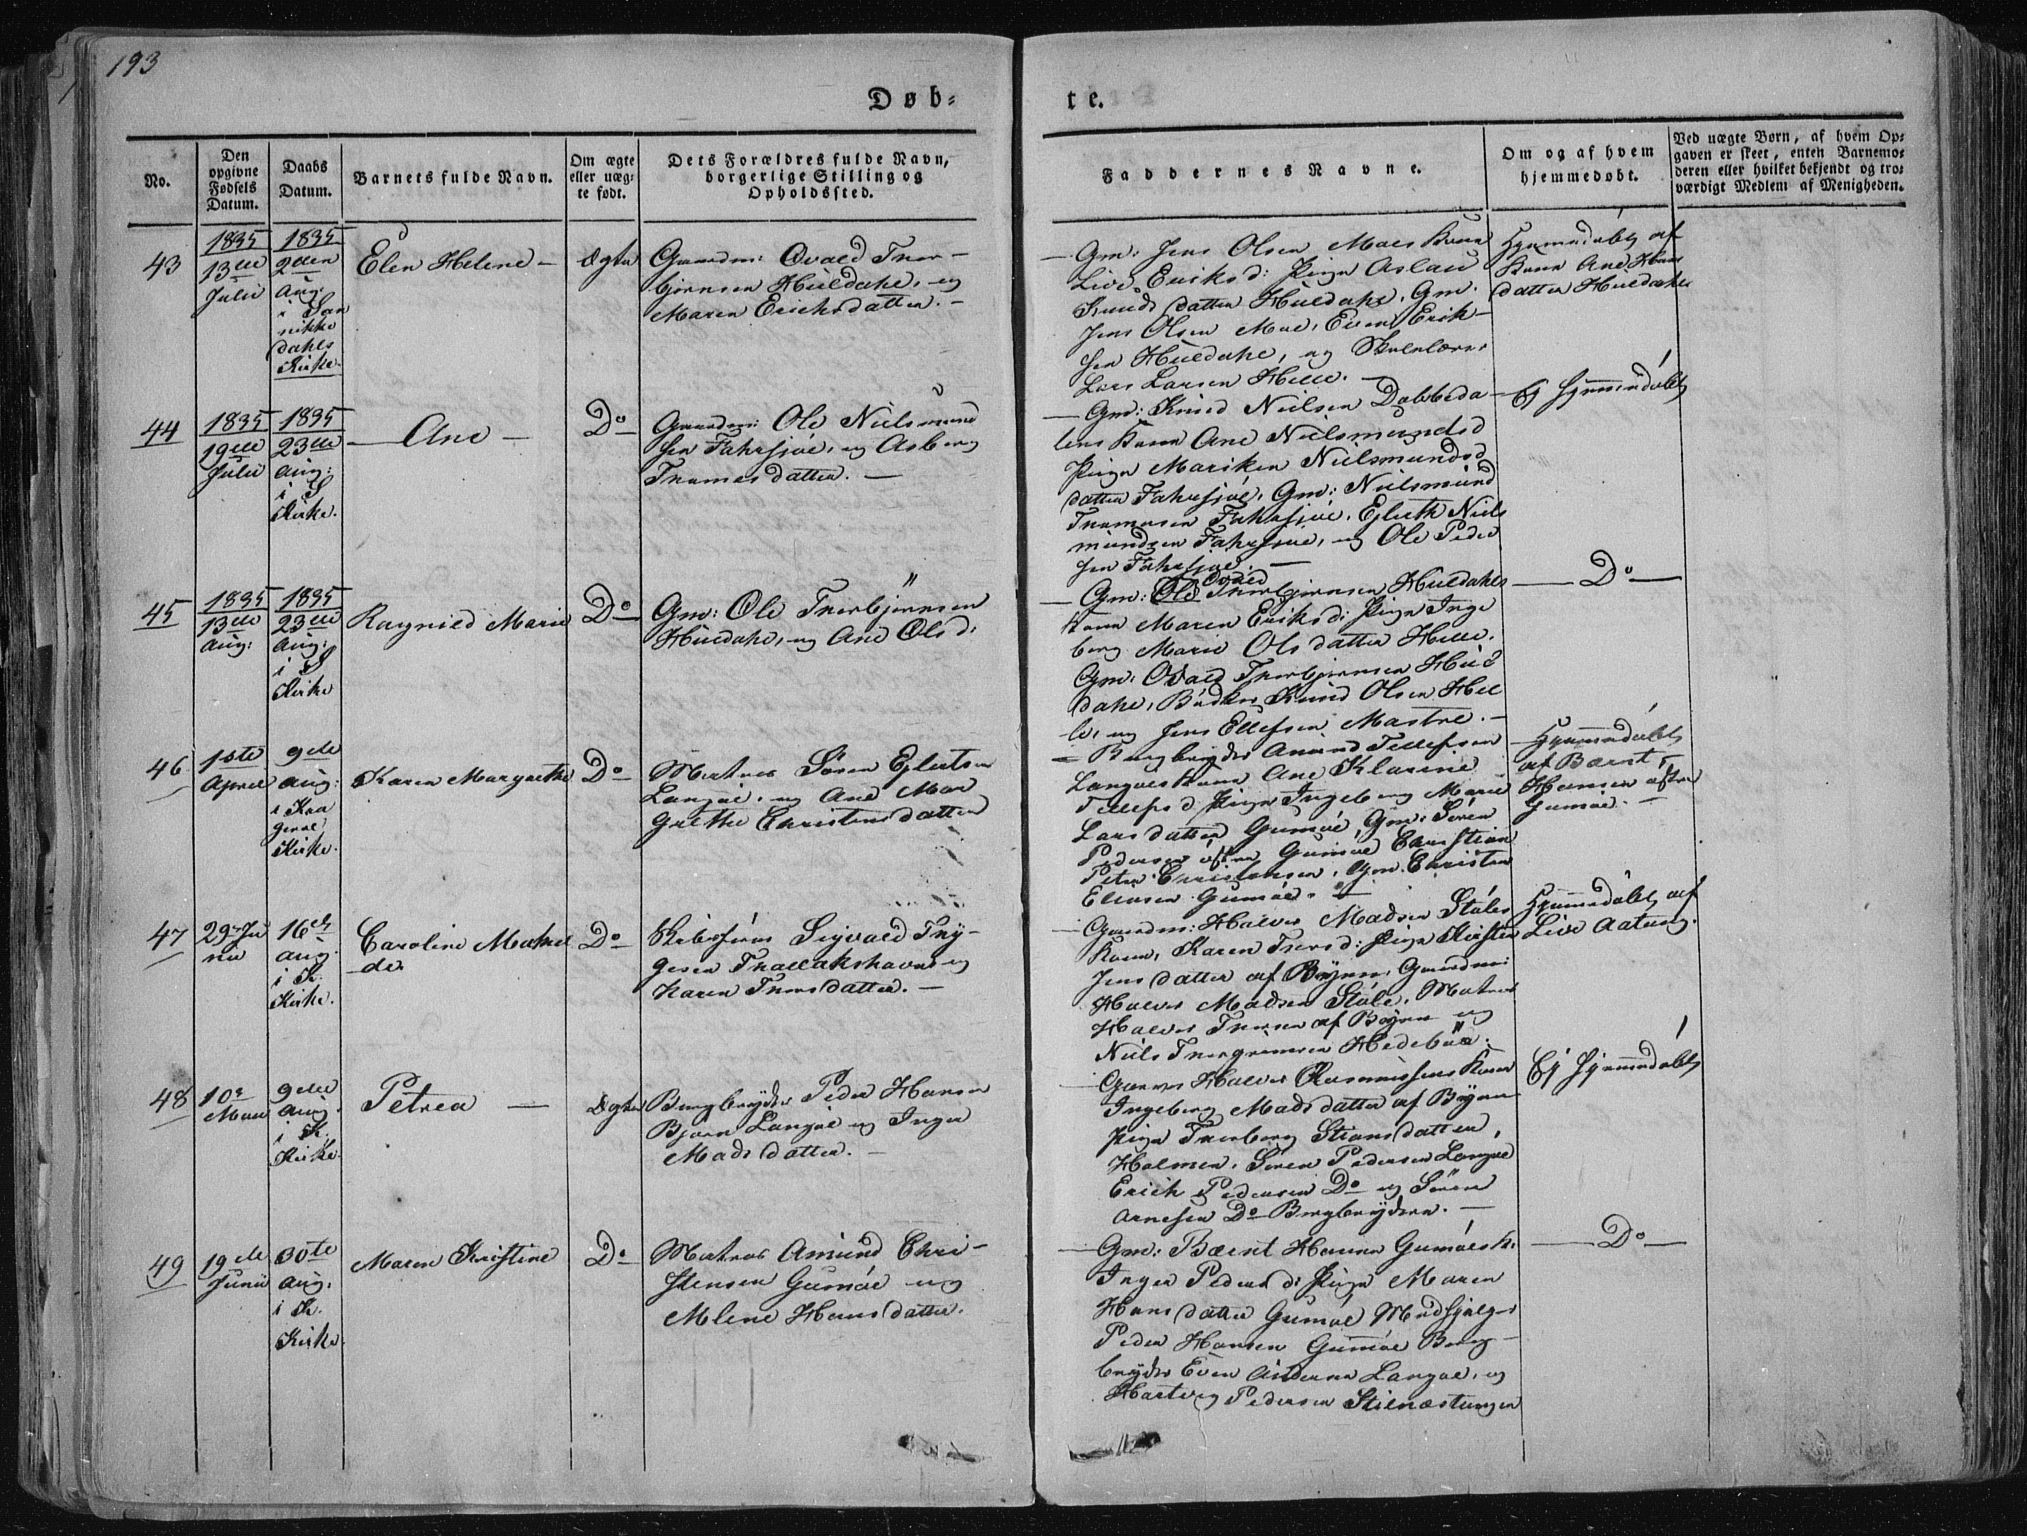 193
Døb-
te.
No.
Den opgivne Fødsels Datum.
Daabs Datum.
Barnets fulde Navn.
Om ægte eller uægte født.
Dets Forældres fulde Navn, borgerlige Stilling og Opholdssted.
Faddernes Navne.
Om og af hvem hjemmedøbt.
Ved uægte Børn, af hvem Opgaven er skeet, enten Barnemoderen eller hvilket bekjendt og troværdigt Medlem af Menigheden.
43
1835
13de
Julii
1835
2den
Aug:
i San
nikke
dahls
Kirke.
Elen Helene —
Ægte
Gaardm: Ovald Thor-
bjørnsen Huldahl, og
Maren Erichsdatter. —
— Gm: Jens Olsen Maes Kone
Live Eriksd: Pige Aslau
Knudsdatter Huldahl, Gm.
Jens Olsen Mae, Even Erik-
sen Huldahl, og Skolelærer
Lars Larsen Helle. —
Hjemmedøbt af
Kone Ane Hans
datter Huldahl
44
1835
19de
Julii
1835
23de
Aug:
i S
Kirke.
— Ane —
Do
Gaardm: Ole Nielsmund
sen Fahrsjøe, og Asberg
Thomasdatter. —
— Gm: Knud Nielsen Dobbeda
lens Kone Ane Nielsmundsd
Pige Mariken Nielsmundsd
datter Fahrsjøe, Gm: Nielsmund
Thomasen Fahrsjøe, Ejleth Niels
mundsen Fahrsjøe, og Ole Peder
sen Fahrsjøe. —
Ej hjemmedøbt
45
1835
13de
Aug:
1835
23de
Aug:
i S
Kirke
Ragnild Marie
Do
Gm: Ole Thorbjørnsen
Huldahl, og Ane Olsd:
Ovald
— Gm: Ole Thorbjørnsen Huldahls
Kone Maren Eriksd: Pige Inge
borg Marie Olsdatter Helle.
Gm: Ovald Thorbjørnsen Huld
dahl, Bødker Knud Olsen Hel
le, og Jens Ellefsen Mastre. —
— Do —
46
1ste
April
9de
Aug:
i Kra
gerøe
Kirke.
Karen Margrethe
Do
Matros Søren Ejlertsen
Langøe, og Ane Mar
grethe Christensdatter
— Bergbryder Amund Tellefsen
Langøes Kone Ane Klarine
Tellefsd Pige Ingeborg Marie
Larsdatter Gumøe, Gm: Søren
Pedersen østre Gumøe, Christian
Peter Christensen, Gm. Christen
Eliasen Gumøe. —
Hjemmedøbt
af Bærnt
Hansen østre
Gumøe. —
47
29 Ju
nii
16de
Aug.
i K.
Kirke.
Caroline Mathil
de
Do
Skibstømr Sigvald Thy-
gesen Thallakshavn og
Karen Thorsdatter. —
— Gaardm: Halvor Madsen Støles
Kone, Karen Thorsd: Pige Kirsten
Jensdatter af Byen, Gaardm:
Halvor Madsen Støle, Matros
Halvor Thorsen af Byen og
Niels Thorgrimsen Hedebøe.
Hjemmedøbt af
Live Aatang.
48
10.
Mai
9de
Aug.
i K.
Kirke
Petrea —
Ægte
Bergbryder Peder Hansen
Bjørn Langøe og Inger
Madsdatter. —
— Garver Halvor Rasmussens Kone
Ingeborg Madsdatter af Byen
Pige Thorberg Stiansdatter
Holmen, Søren Pedersen Langøe
Erich Pedersen Do og Søren
Arnesen Do Bergbrydere. —
Ej hjemmedøbt
49
19de
Junii
30te
Aug.
i K.
Kirke.
Maren Kristine
Do
Matros Amund Chri-
stensen Gumøe og
Malene Hansdatter.
— Gm: Bærnt Hansen Gumøes K.
Inger Pedersd: Pige Maren
Hansdatter Gumøe
Peder Hansen Gumøe Berg-
bryder Even Andersen Langøe, og
Hartvig Pedersen Stilnæstangen
— Do —